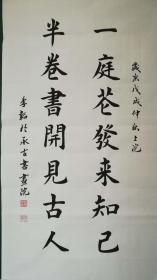 歲次戊戌仲秋上浣
一庭苍發来知己
半卷書開見古人
李韜於承古書畫院